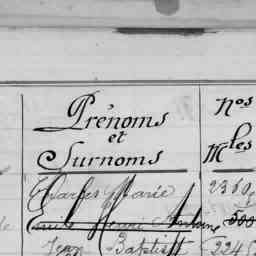 Prénoms
et
Surnoms
Nos
Mles
Charles Marie
Emile Henri Antoine 500
Jean Baptist 2245
de